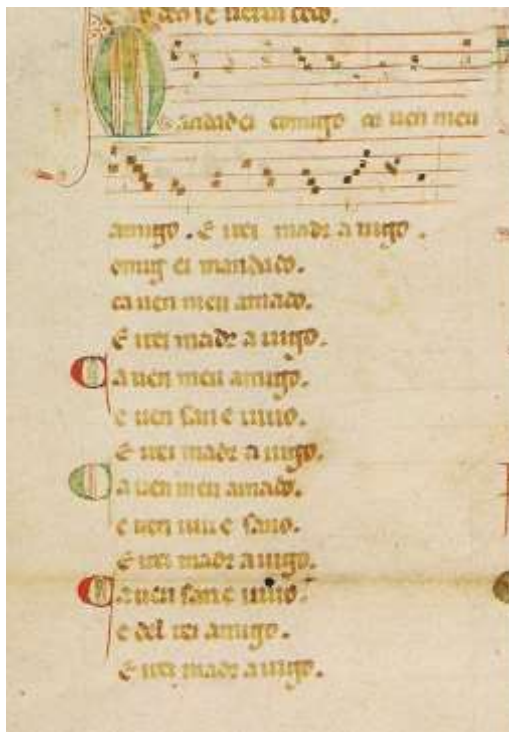 se uerra cedo.
Mandad ei comigo ca uen meu
amigo. E irei madr a uigo.
comig ei mandado.
ca uen meu amado.
E irei madr a uigo.
Ca uen meu amigo.
e uen san e uiuo.
E irei madr a uigo.
Ca uen meu amado.
e uen uiu e sano.
E irei madr a uigo.
Ca uen san e uiuo.
e del rei amigo.
E irei madr a uigo.